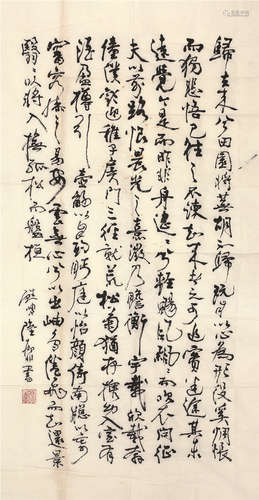 歸去來兮田園將蕪胡不歸既自以心為形役奚惆悵
而獨悲悟已往之不諫知來者之可追實迷途其未
遠覺今是而昨非舟遙遙以輕颺風飄飄而吹衣問征
夫以前路恨晨光之熹微乃瞻衡宇載欣載奔
僮僕歡迎稚子候門三徑就荒松菊猶存攜幼入室有
酒盈樽引壺觴以自酌眄庭以怡顏倚南窗以寄
審容膝之易安雲無心以出岫鳥倦飛而知還景
翳翳以將入撫孤松而盤桓
陸書